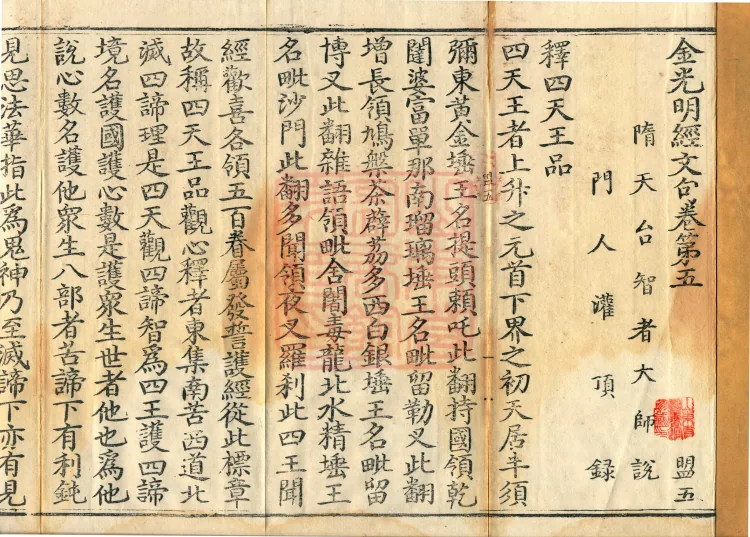 金光明經文句卷第五 盟五
隋天台智者大師說
門人灌頂錄
釋四天王品
四天王者上升之元首下界之初天居半須
彌東黃金埵王名提頭賴吒此翻持國領乾
闥婆富單那南瑠璃埵王名毗留勒叉此翻
增長領鳩槃茶薜荔多西白銀埵王名毗留
博叉此翻雜語領毗舍闍毒龍北水精埵王
名毗沙門此翻多聞領夜叉羅利此四王聞
經歡喜各領五百眷屬發誓護經從此標章
故稱四天王品觀心釋者東集南苦西道北
滅四諦理是四天觀四諦智為四王護四諦
境名護國護心數是護眾生世者他也為他
說心數名護他眾生八部者苦諦下有利鈍
見思法華指此為鬼神乃至滅諦下亦有見